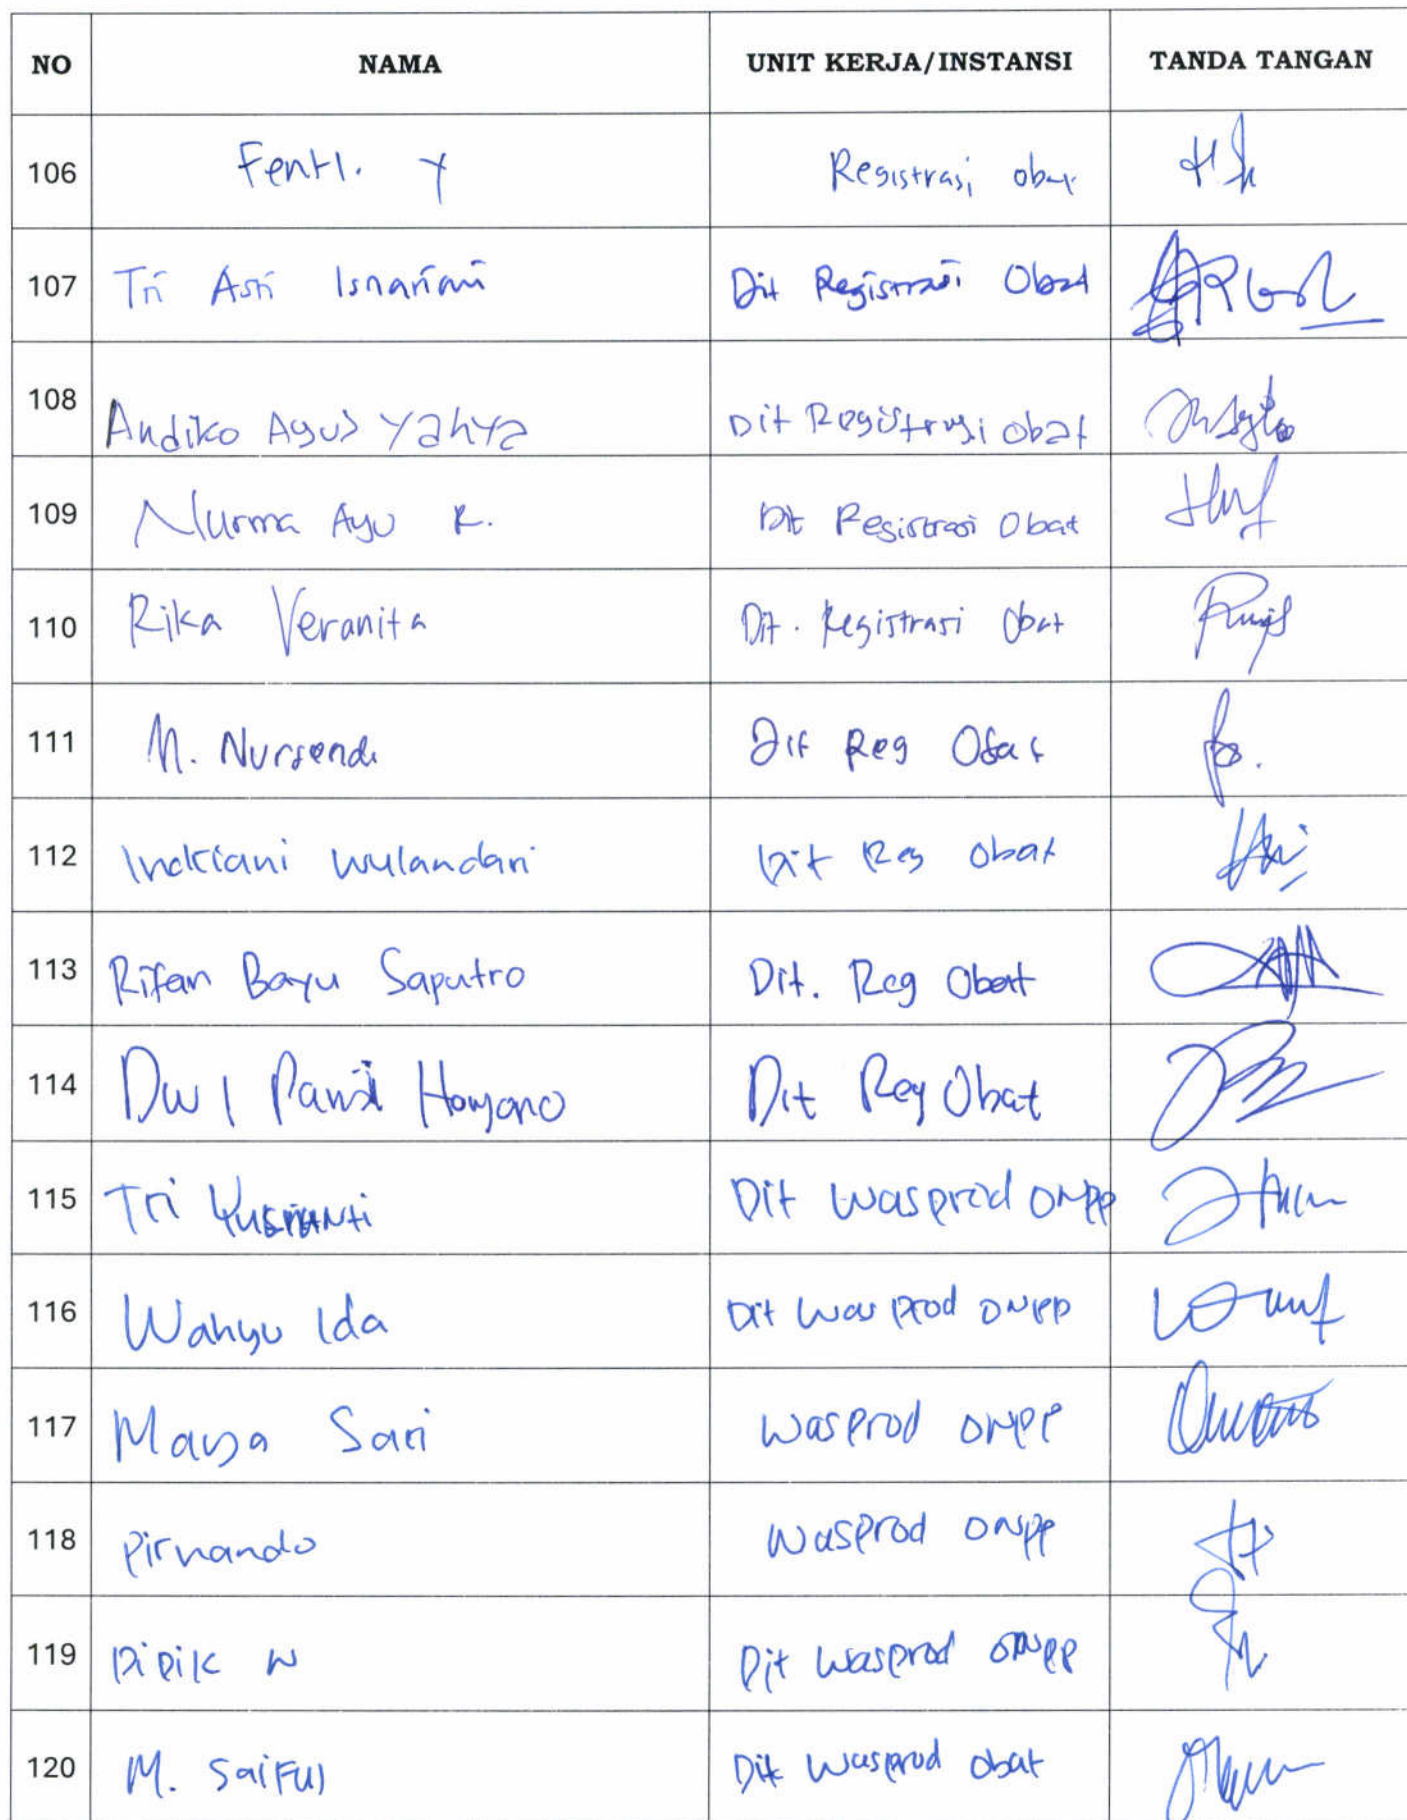 NO NAMA UNIT KERJA/INSTANSI TANDA TANGAN
106 Fentl. Y Registrasi obat
107 Tri Asri Isnariani Dit Registrasi Obat
108 Andiko Agus Yahya Dit Registrasi Obat
109 Nurma Ayu R. Dit Registrasi Obat
110 Rika Veranita Dit. Registrasi Obat
111 M. Nursendi Dit Reg Obat
112 Indriani Wulandari Dit Reg Obat
113 Rifan Bayu Saputro Dit. Reg Obat
114 Dwi Haryono Dit Reg Obat
115 Tri Dit Wasprod ONPP
116 Wahyu Ida Dit Was Prod ONPP
117 Maya Sari Wasprod ONPP
118 Pirnando Wasprod ONPP
119 Pipik W Dit Wasprod ONPP
120 M. Saiful Dit Wasprod Obat